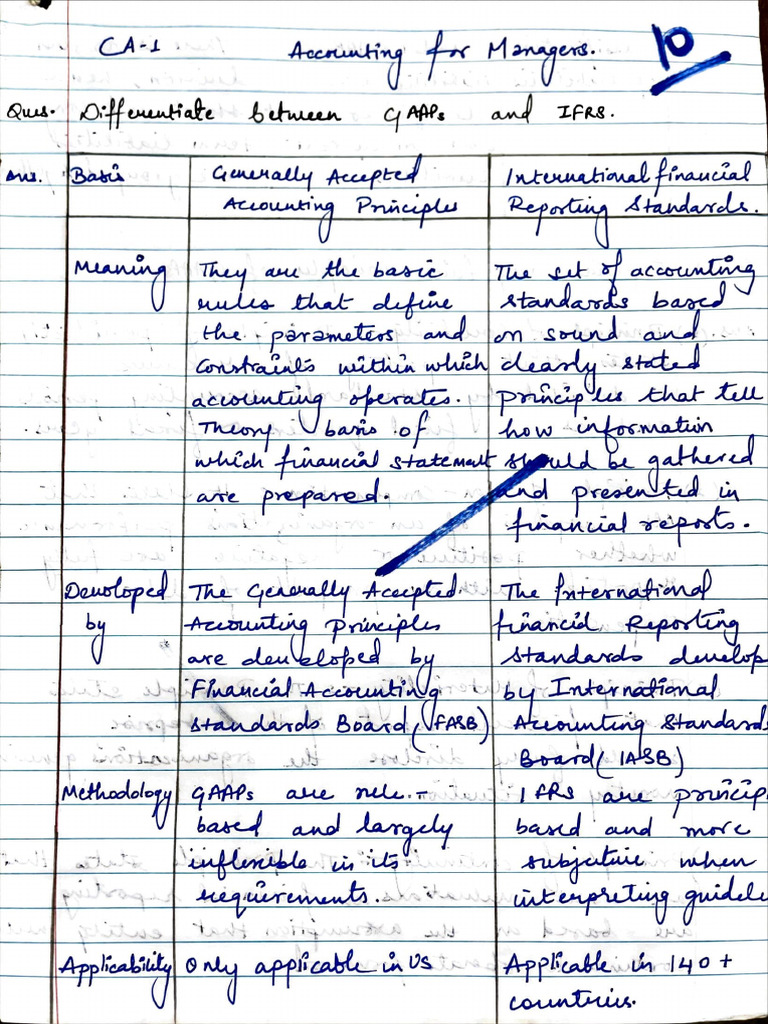 CA-1 Accounting for Managers. 10
Ques. Differentiate between GAAPs and IFRS.
Ans. Basis
Generally Accepted
Accounting Principles
International financial
Reporting Standards.
Meaning
They are the basic
rules that define
the parameters and
constraints within which
accounting operates.
Theory basis of
which financial statement
are prepared.
The set of accounting
standards based
on sound and
clearly stated
principles that tell
how information
should be gathered
and presented in
financial reports.
Developed
by
The Generally Accepted
Accounting Principles
are developed by
Financial Accounting
Standards Board (FASB)
The International
financial Reporting
Standards develop
by International
Accounting Standards
Board (IASB)
Methodology
GAAPs are rule-
based and largely
inflexible in its
requirements.
IFRs are princip
based and more
subjective when
interpreting guidele
Applicability
Only applicable in US
Applicable in 140+
countries.